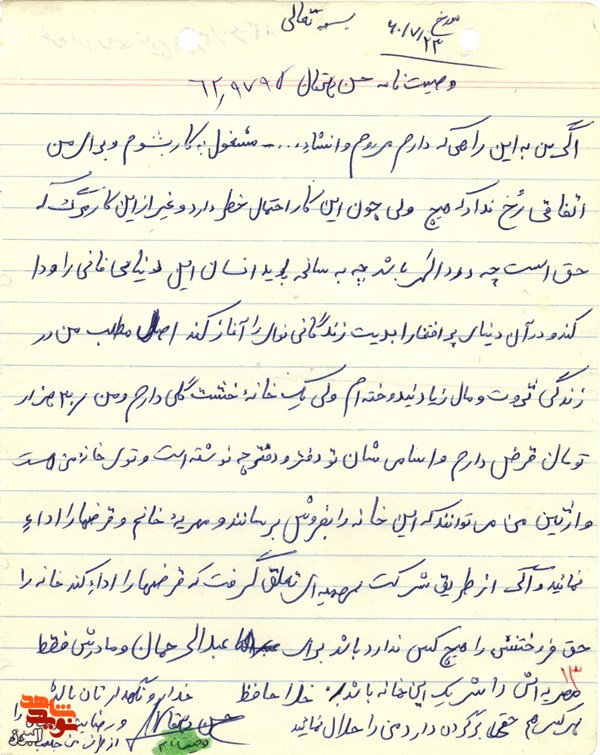 بسمه تعالی
مورخ
۶۰/۷/۲۳
وصیت نامه حسن دهقان ۶۲٫۹۷۹۵
اگر من به این راهی که دارم میروم و انشاء... مشغول به کار بشوم و برای من
اتفاقی رخ نداد که هیچ ولی چون این کار احتمال خطر دارد و غیر از این کار مرگ که
حق است چه دود اگر باشد چه به سانحه باید انسان این دنیای فانی را ودا
کند و در آن دنیای پر افتخار ابدیت زندگانی نوی را آغاز کند اصل مطلب من در
زندگی ثروت و مال زیاد نیدوخته ام ولی یک خانه خشت گلی دارم و من ۳۰ هزار
تومان قرض دارم و اسامی شان تو دفتر و دفترچه نوشته است و توی خانه من هست
وارثین من می توانند که این خانه را بفروش برسانند و مهریه خانم و قرضها را اداء
نمائید و اگر از طریق شرکت سهمیه ای تعلق گرفت که قرضها را اداء کند خانه را
حق فروختنش را هیچ کس ندارد باشد برای عبدالرحمان و مادرش فقط
مهریه اش را شریک این خانه باشد خدا حافظ خدا و نگهدارتان باشد
هر کس هم حقی بر گردن دارد من را حلال نمائید
حسن دهقان
۱۳
نوید شاهد